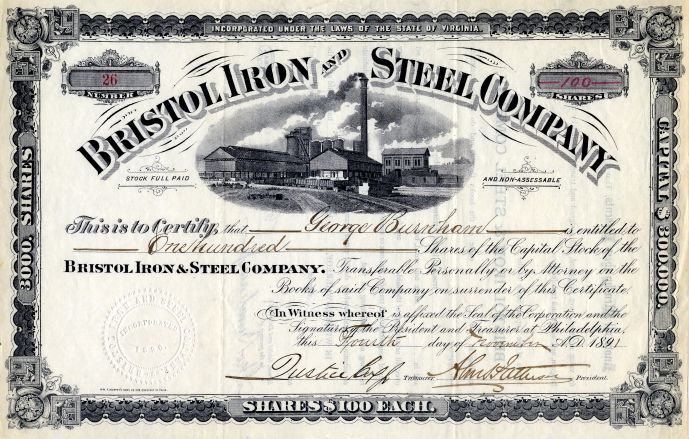 INCORPORATED UNDER THE LAWS OF THE STATE OF VIRGINIA.
26
NUMBER
100
SHARES
BRISTOL IRON AND STEEL COMPANY
STOCK FULL PAID
AND NON-ASSESSABLE
3000 SHARES
CAPITAL $300,000.
This is to Certify, that George Burnham is entitled to
One hundred Shares of the Capital Stock of the
BRISTOL IRON & STEEL COMPANY. Transferable Personally or by Attorney on the
Books of said Company on surrender of this Certificate.
In Witness whereof is affixed the Seal of the Corporation and the
Signatures of the President and Treasurer at Philadelphia,
this Fourth day of November A.D. 1891
Treasurer
President.
INCORPORATED
1890.
SHARES $100 EACH.